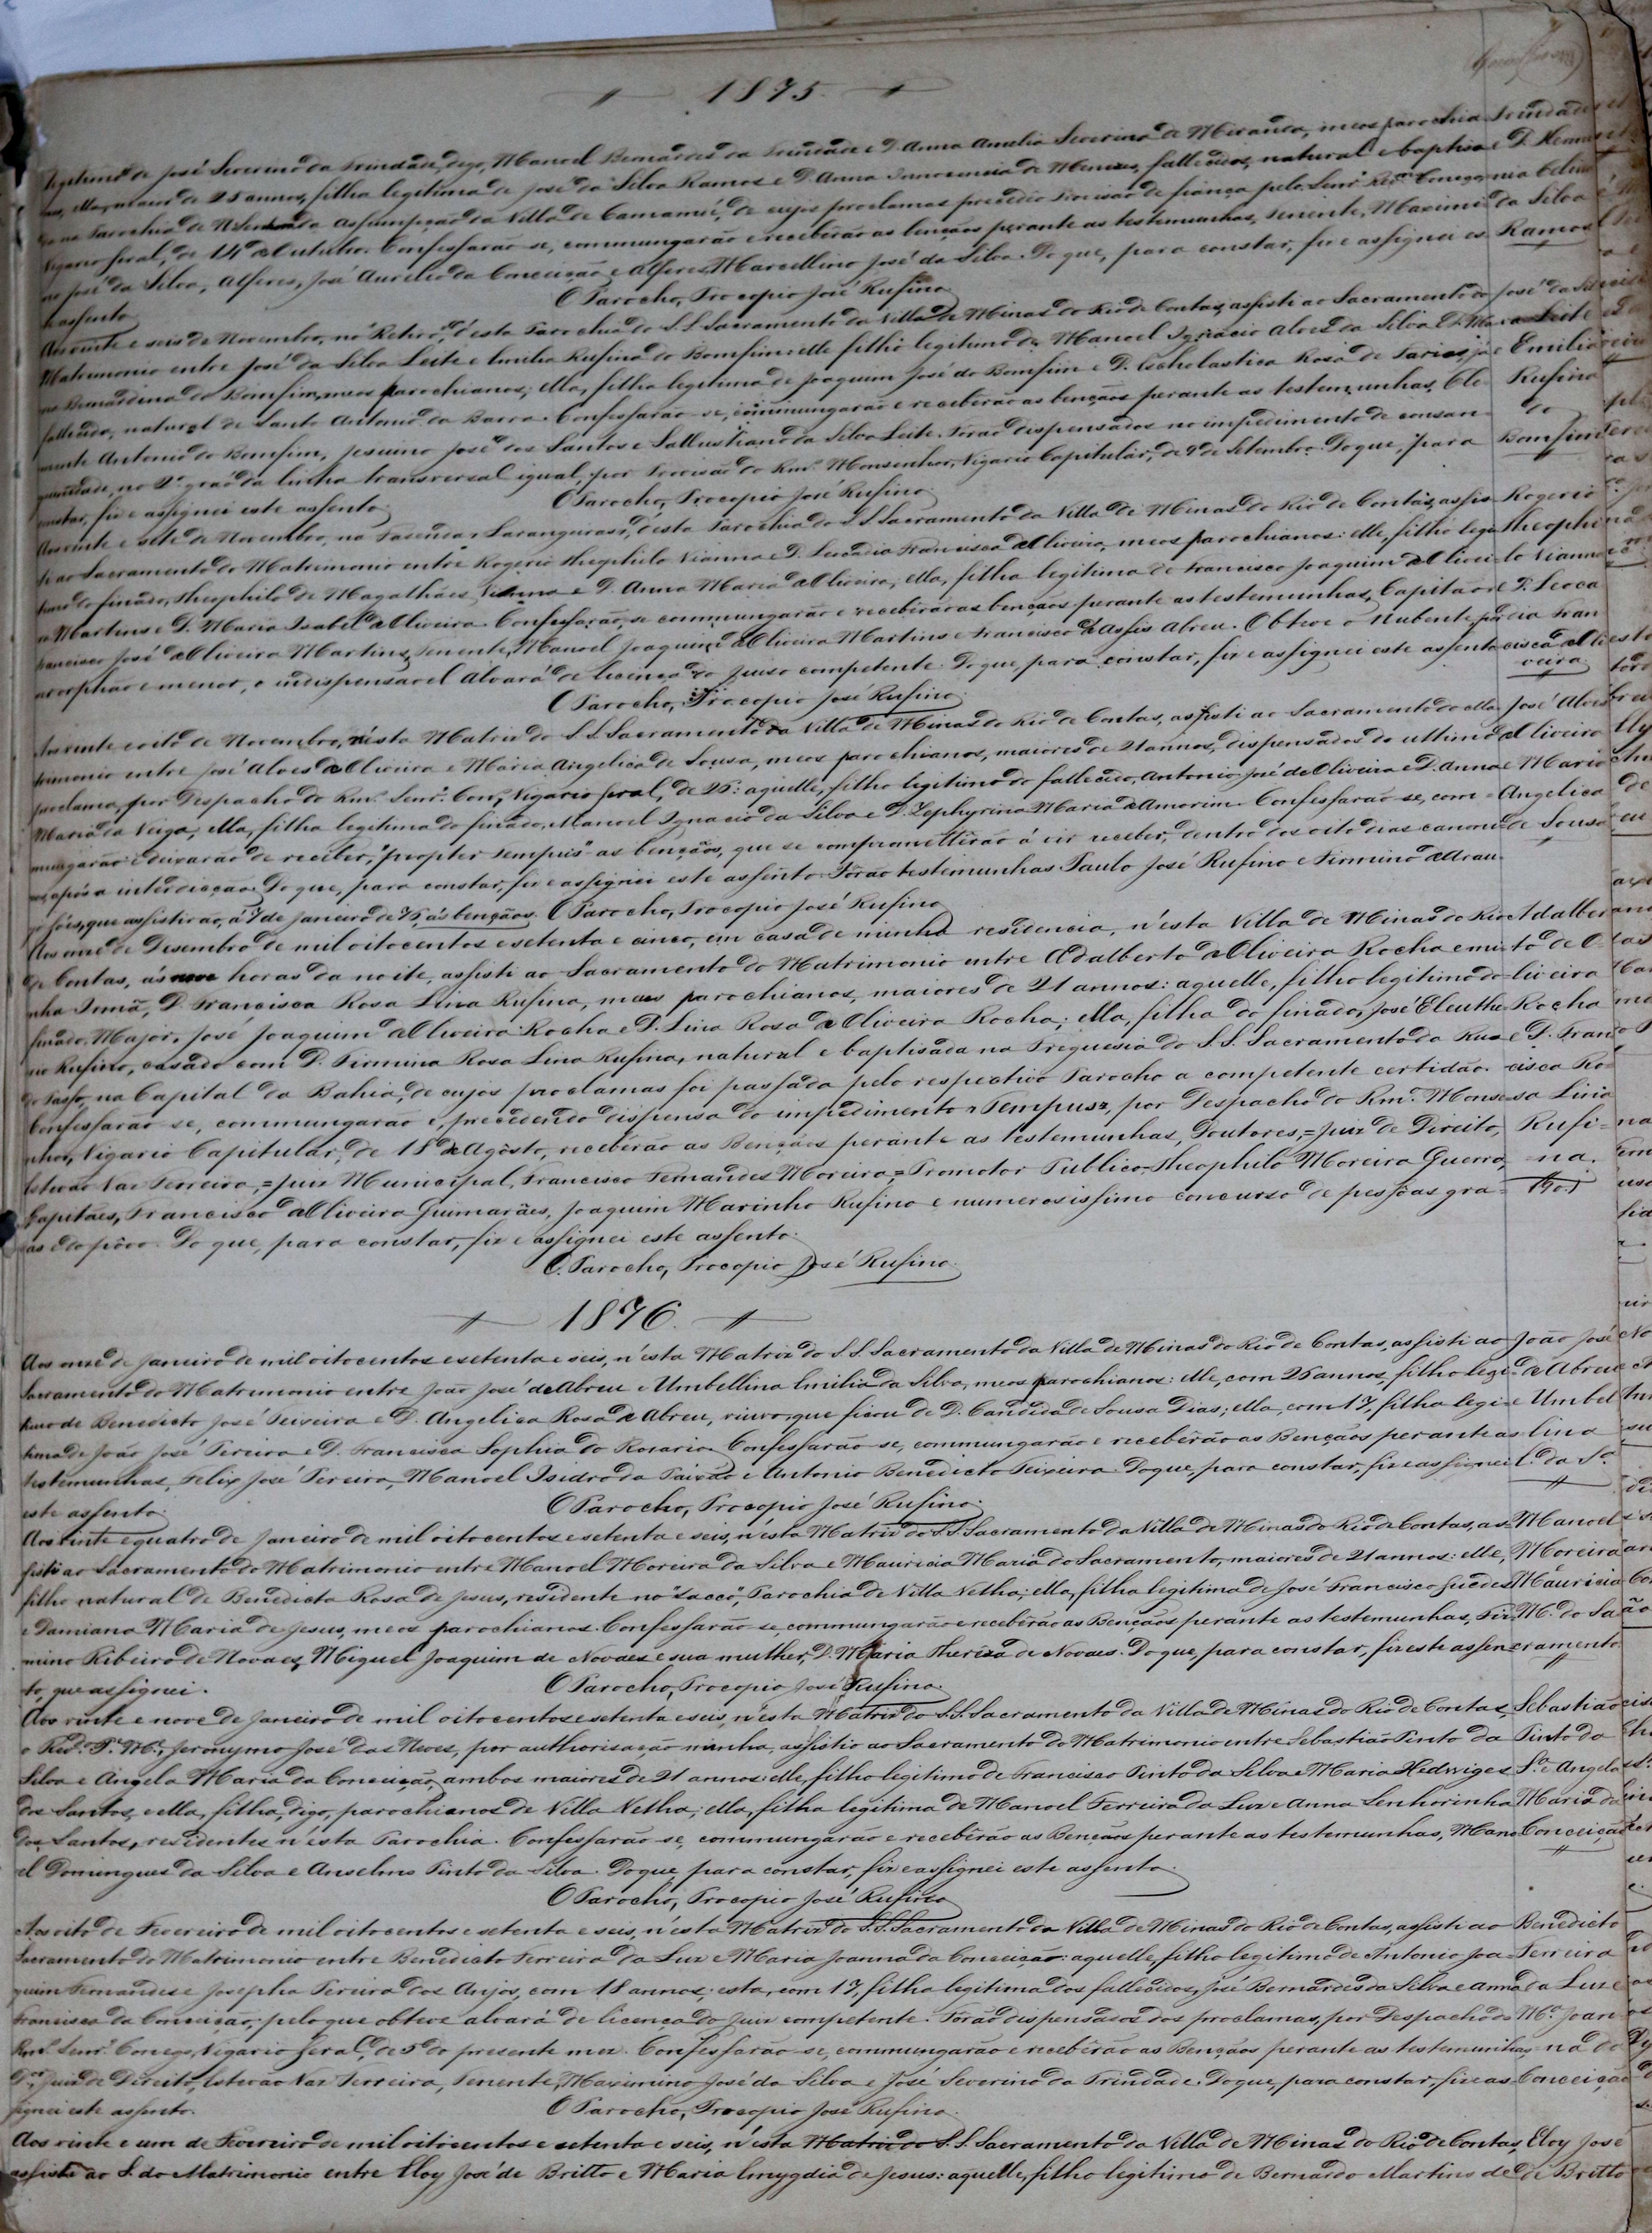 1875.
legitimo de José Severino da Trindade, digo, Manoel Bernardes da Trindade e D. Anna Amelia Severina de Miranda, meos parochia- Trindade
nos, ella, maior de 25 annos, filha legitima de José da Silva Ramos e D. Anna Innocencia de Menezes, fallecidos, natural e baptisa- e D.
da na Parochia de N. Senhora da Assumpção da Villa de Camamú, de cujos proclamas precedeo Provisão de fiança pelo Senr. Rev. Conego
Vigario Geral, de 14 de Outubro. Confessarão-se, commungarão e receberão as bençãos perante as testemunhas, Tenente, Maximi- da Silva
no José da Silva, Alferes, José Aurelio da Conceição e Alferes, Marcellino José da Silva. Do que, para constar, fiz e assignei es- Ramos
te assento.
O Parocho, Procopio José Rufino.
Aos vinte e seis de Novembro, no Retiro, d'esta Parochia do S.S. Sacramento da Villa de Minas do Rio de Contas, assisti ao Sacramento do José da Silva
Matrimonio entre José da Silva Leite e Emilia Rufina do Bomfim: elle filho legitimo de Manoel Ignacio Alves da Silva e Leite e
na Bernardina do Bomfim, meos parochianos; ella, filha legitima de Joaquim José do Bomfim e D. Escholastica Rosa de Farias, já Emilia
fallecida, natural de Santo Antonio da Barra. Confessarão-se, commungarão e receberão as bençãos perante as testemunhas, Cle- Rufina
mente Antonio do Bomfim, Jesuino José dos Santos e Sallustiano da Silva Leite. Forão dispensados no impedimento de consan- do
guinidade, no 2º gráo da linha transversal igual, por Provisão do Rmº Monsenhor, Vigario Capitular, de 9 de Setembro. Do que, para Bomfim
constar, fiz e assignei este assento.
O Parocho, Procopio José Rufino.
Aos vinte e sete de Novembro, na Fazenda "Larangeiras", d'esta Parochia do S.S. Sacramento da Villa de Minas do Rio de Contas, assis- Rogerio
ti ao Sacramento do Matrimonio entre Rogerio Theophilo Vianna e D. Leocadia Francisca de Oliveira, meos parochianos: elle, filho legi- Theophi-
timo do finado, Theophilo de Magalhães Vianna e D. Anna Maria de Oliveira, ella, filha legitima de Francisco Joaquim de Olivei- lo Vianna
ra Martins e D. Maria Isabel de Oliveira. Confessarão-se, commungarão e receberão as bençãos perante as testemunhas, Capitão e D. Leoca-
Francisco José de Oliveira Martins, Tenente, Manoel Joaquim de Oliveira Martins e Francisco de Assis Abreu. Obteve o Nubente, pa- dia Fran-
ra orphão e menor, o indispensavel Alvará de licença do Juiso competente. Do que, para constar, fiz e assignei este assento. cisca de Oli-
veira
O Parocho, Procopio José Rufino.
Aos vinte e oito de Novembro, n'esta Matriz do S.S. Sacramento da Villa de Minas do Rio de Contas, assisti ao Sacramento do Ma- José Alves
trimonio entre José Alves de Oliveira e Maria Angelica de Sousa, meos parochianos, maiores de 21 annos, dispensados do ultimo de Oliveira
proclama, por Despacho do Rmº Senr. Con., Vigario Geral, de 26: aquelle, filho legitimo do fallecido, Antonio José de Oliveira e D. Anna e Maria
Maria da Veiga; ella, filha legitima do finado, Manoel Ignacio da Silva e D. Zephyrina Maria de Amorim. Confessarão-se, com- Angelica
mungarão e deixarão de receber, "propter tempus" as bençãos, que se comprometterão á vir receber, dentro dos oito dias canoni- de Sousa
cos, após a interdicção. Do que, para constar, fiz e assignei este assento. Forão testemunhas Paulo José Rufino e Firmino de Arau-
jo Góes, que assistirão, á 7 de Janeiro de 76, ás bençãos. O Parocho, Procopio José Rufino.
Aos onze de Desembro de mil oitocentos e setenta e cinco, em casa de minha residencia, n'esta Villa de Minas do Rio Adalber-
de Contas, ás nove horas da noite, assisti ao Sacramento do Matrimonio entre Adalberto de Oliveira Rocha e mi- to de O-
nha Irmã, D. Francisca Rosa Lina Rufina, meos parochianos, maiores de 21 annos: aquelle, filho legitimo do liveira
finado, Major, José Joaquim de Oliveira Rocha e D. Lina Rosa de Oliveira Rocha; ella, filha do finado, José Eleuthe- Rocha
rio Rufino, casado com D. Firmina Rosa Lina Rufina, natural e baptisada na Freguesia do S.S. Sacramento da Rua e D. Fran-
do Passo, na Capital da Bahia, de cujos proclamas foi passada pelo respectivo Parocho a competente certidão. cisca Ro-
Confessarão-se, commungarão e, precedendo dispensa do impedimento "Tempus", por Despacho do Rmº Monse- sa Lina
nhor, Vigario Capitular, de 18 de Agosto, receberão as Bençãos perante as testemunhas, Doutores, = Juiz de Direito, Rufi-
Estevão Vaz Ferreira, = Juiz Municipal, Francisco Fernandes Moreira, = Promotor Publico, Theophilo Moreira Guerra, na.
Capitães, Francisco de Oliveira Guimarães, Joaquim Marinho Rufino e numerosissimo concurso de pessoas gra-
das e do povo. Do que, para constar, fiz e assignei este assento.
O Parocho, Procopio José Rufino.
1876.
Aos onze de Janeiro de mil oitocentos e setenta e seis, n'esta Matriz do S.S. Sacramento da Villa de Minas do Rio de Contas, assisti ao João José
Sacramento do Matrimonio entre João José de Abreu e Umbellina Emilia da Silva, meos parochianos: elle, com 26 annos, filho legi- de Abreu
timo de Benedicto José Teixeira e D. Angelica Rosa de Abreu, viuvo, que ficou de D. Candida de Sousa Dias; ella, com 17, filha legi- e Umbel-
tima de João José Pereira e D. Francisca Sophia do Rosario. Confessarão-se, commungarão e receberão as Bençãos perante as lina
testemunhas, Felix José Pereira, Manoel Isidro da Paixão e Antonio Benedicto Teixeira. Do que, para constar, fiz e assignei E. da Sª
este assento.
O Parocho, Procopio José Rufino.
Aos vinte e quatro de Janeiro de mil oitocentos e setenta e seis, n'esta Matriz do S.S. Sacramento da Villa de Minas do Rio de Contas, as- Manoel
sisti ao Sacramento do Matrimonio entre Manoel Moreira da Silva e Mauricia Maria do Sacramento, maiores de 21 annos: elle, Moreira
filho natural de Benedicta Rosa de Jesus, residente no "Sacco", Parochia de Villa Velha; ella, filha legitima de José Francisco Guedes Mauricia
e Damiana Maria de Jesus, meos parochianos. Confessarão-se, commungarão e receberão as Bençãos perante as testemunhas, Fir- Mª do Sa-
mino Ribeiro de Novaes, Miguel Joaquim de Novaes e sua mulher, D. Maria Thereza de Novaes. Do que, para constar, fiz este assen- cramento
to, que assignei.
O Parocho, Procopio José Rufino.
Aos vinte e nove de Janeiro de mil oitocentos e setenta e seis, n'esta Matriz do S.S. Sacramento da Villa de Minas do Rio de Contas, Sebastião
o Redº Pº Mº, Jeronymo José das Neves, por authorisação minha, assistio ao Sacramento do Matrimonio entre Sebastião Pinto da Pinto da
Silva e Angela Maria da Conceição, ambos maiores de 21 annos: elle, filho legitimo de Francisco Pinto da Silva e Maria Hedwiges Sª e Angela
dos Santos, e ella, filha, digo, parochianos de Villa Velha; ella, filha legitima de Manoel Ferreira da Luz e Anna Senhorinha Maria da
dos Santos, residentes n'esta Parochia. Confessarão-se, commungarão e receberão as Bençãos perante as testemunhas, Mano- Conceição
el Domingues da Silva e Anselmo Pinto da Silva. Do que, para constar, fiz e assignei este assento.
O Parocho, Procopio José Rufino
Aos oito de Fevereiro de mil oitocentos e setenta e seis, n'esta Matriz do S.S. Sacramento da Villa de Minas do Rio de Contas, assisti ao Benedicto
Sacramento do Matrimonio entre Benedicto Ferreira da Luz e Maria Joanna da Conceição: aquelle, filho legitimo de Antonio Joa- Ferreira
quim Fernandes e Josepha Pereira dos Anjos, com 18 annos; esta, com 17, filha legitima dos fallecidos, José Bernardes da Silva e Anna da Luz e
Francisca da Conceição, pelo que obteve alvará de licença do Juiz competente. Forão dispensados dos proclamas, por Despacho do Mª Joan-
Rmº Senr. Conego, Vigario Geral, de 5 do presente mez. Confessarão-se, commungarão e receberão as Bençãos perante as testemunhas, na da
Dr., Juiz de Direito, Estevão Vaz Ferreira, Tenente, Maximino José da Silva e José Severino da Trindade. Do que, para constar, fiz e as- Conceição
signei este assento.
O Parocho, Procopio José Rufino.
Aos vinte e um de Fevereiro de mil oitocentos e setenta e seis, n'esta Matriz do S.S. Sacramento da Villa de Minas do Rio de Contas, Eloy José
assisti ao S. do Matrimonio entre Eloy José de Britto e Maria Emygdia de Jesus: aquelle, filho legitimo de Bernardo Martins de de Britto